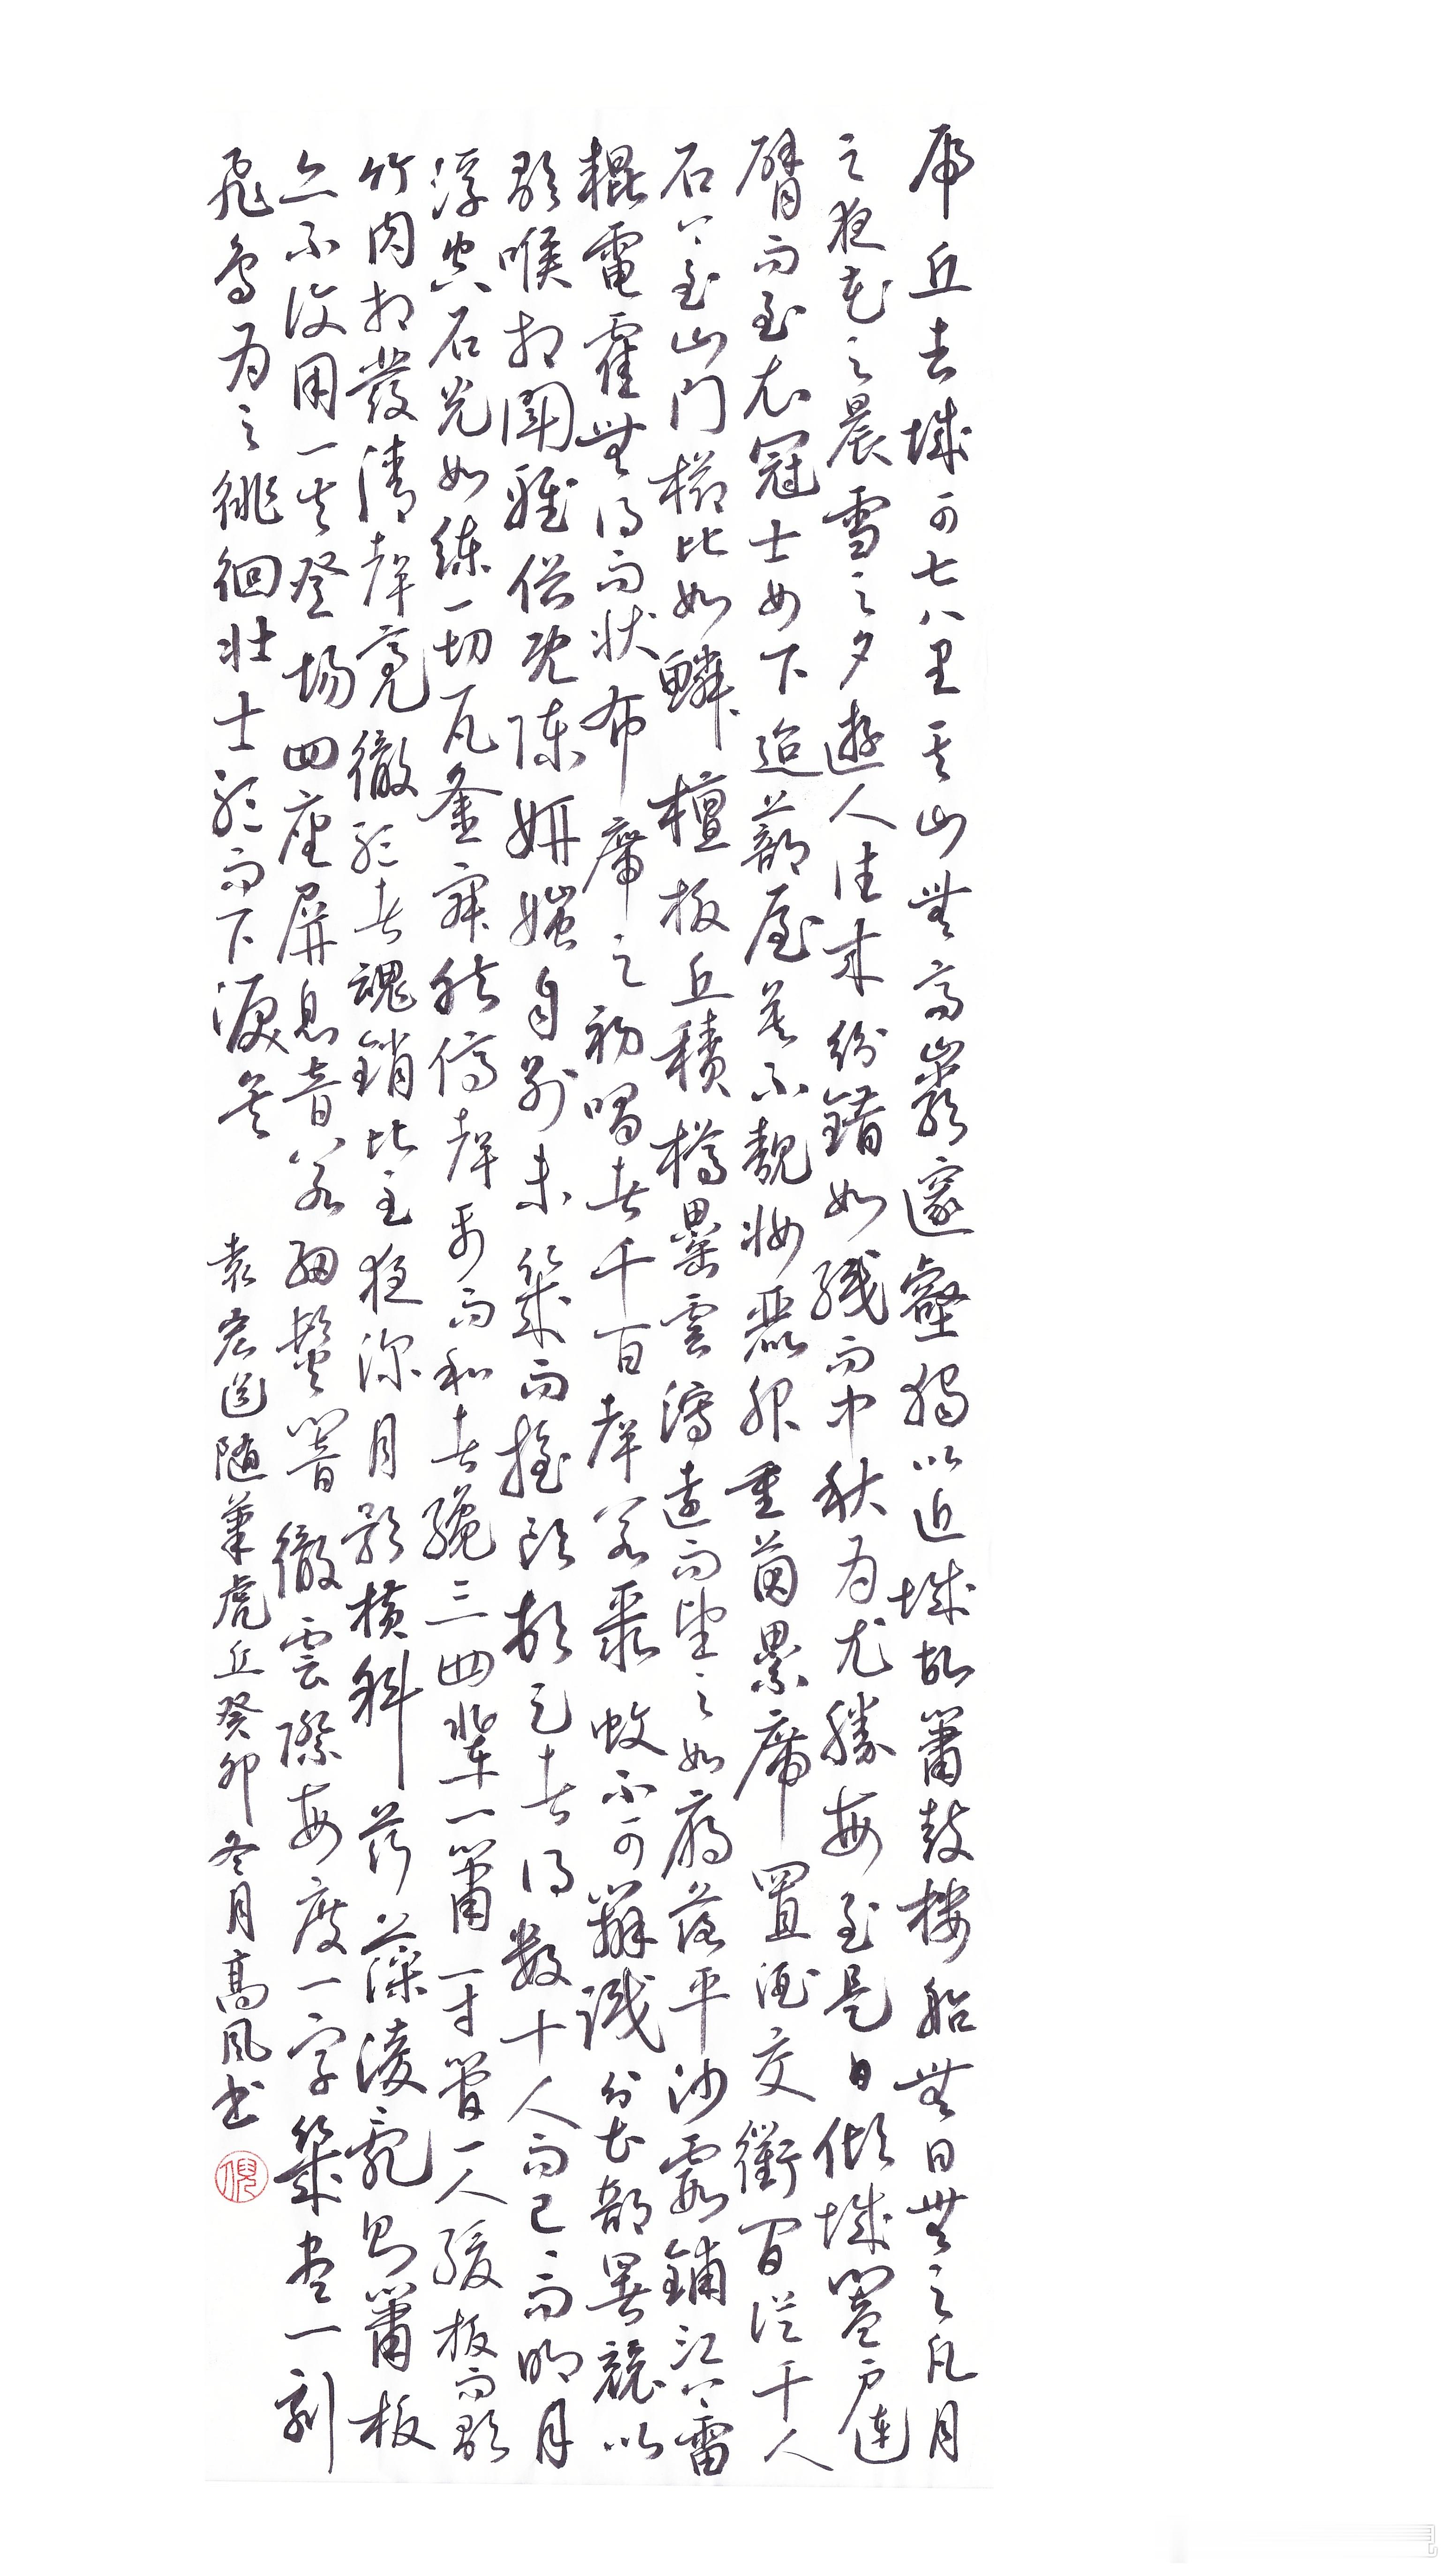 虎丘去城可七八里其山無高巖邃壑獨以近城故簫鼓樓船無日無之凡月
之夜花之晨雪之夕遊人往来紛錯如織而中秋為尤勝每至是日傾城闔戶連
臂而至衣冠士女下迨蔀屋莫不靚妝麗服重茵累席置酒交衢間從千人
石上至山門櫛比如鱗檀板丘積樽罍雲瀉遠而望之如雁落平沙霞鋪江上雷
輥電霍無得而状布席之初唱者千百聲若聚蚊不可辨識分曹部署競以
歌喉相鬥雅俗既陳妍媸自別未幾而搖頭頓足者得數十人而已已而明月
浮空石光如練一切瓦釜寂然停聲屬而和者纔三四輩一簫一寸管一人緩板而歌
竹肉相發清聲亮徹聽者魂銷比至夜深月影橫斜荇藻凌亂則簫板
亦不復用一夫登場四座屏息音若細髮響徹雲際每度一字幾盡一刻
飛鳥為之徘徊壯士聽而下淚矣 袁宏道随筆虎丘癸卯冬月高风书
倪